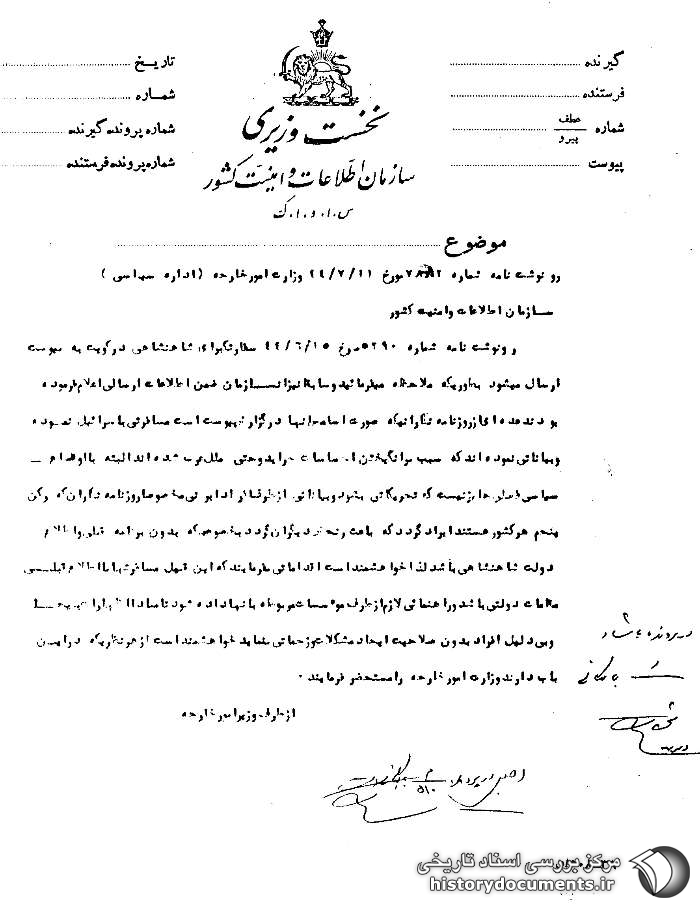 گیرنده
فرستنده
شماره عطف پیرو
پیوست
تاریخ
شماره
شماره پرونده گیرنده
شماره پرونده فرستنده
نخست وزیری
سازمان اطلاعات و امنیت کشور
س.ا.و.ا.ک
موضوع
رونوشت نامه شماره مورخ ۴۴/۷/۱۱ وزارت امور خارجه (اداره سیاسی)
سازمان اطلاعات و امنیت کشور
رونوشت نامه شماره ۵۲۹۰ مورخ ۴۴/۶/۱۵ سفارتکبرای شاهنشاهی در کویت به پیوست
ارسال میشود بطوریکه ملاحظه میفرمائید و سابقا نیز آن سازمان ضمن اطلاعات ارسالی اعلام فرموده
بودند عده ای از روزنامه نگارانیکه صورت اسامی آنها در گزارش پیوست است مسافرتی باسرائیل نموده
و بیاناتی نموده اند که سبب برانگیختن احساسات جراید وحتی ملل عرب شده اند البته با اوضاع
سیاسی فعلی جایز نیست که تحریکاتی بشود و بیاناتی از طرف افراد ایرانی مخصوصا روزنامه نگاران که رکن
پنجم هر کشور هستند ایراد گردد که باعث رنجش دیگران گردد بخصوص که بدون برنامه قبلی و اطلاع
دولت شاهنشاهی باشد لذا خواهشمند است اقداماتی بفرمایند که این قبیل مسافرتها با اطلاع قبلی
مقامات دولتی باشد و راهنمائی لازم از طرف موسسات مربوطه بآنها داده شود تا مبادا اظهارات بیجا
و بی دلیل افراد بدون صلاحیت ایجاد مشکلات و زحماتی بنماید خواهشمند است از هر نظریکه در این
باب دارند وزارت امور خارجه را مستحضر فرمایند.
از طرف وزیر امور خارجه
مرکز بررسی اسناد تاریخی
historydocuments.ir